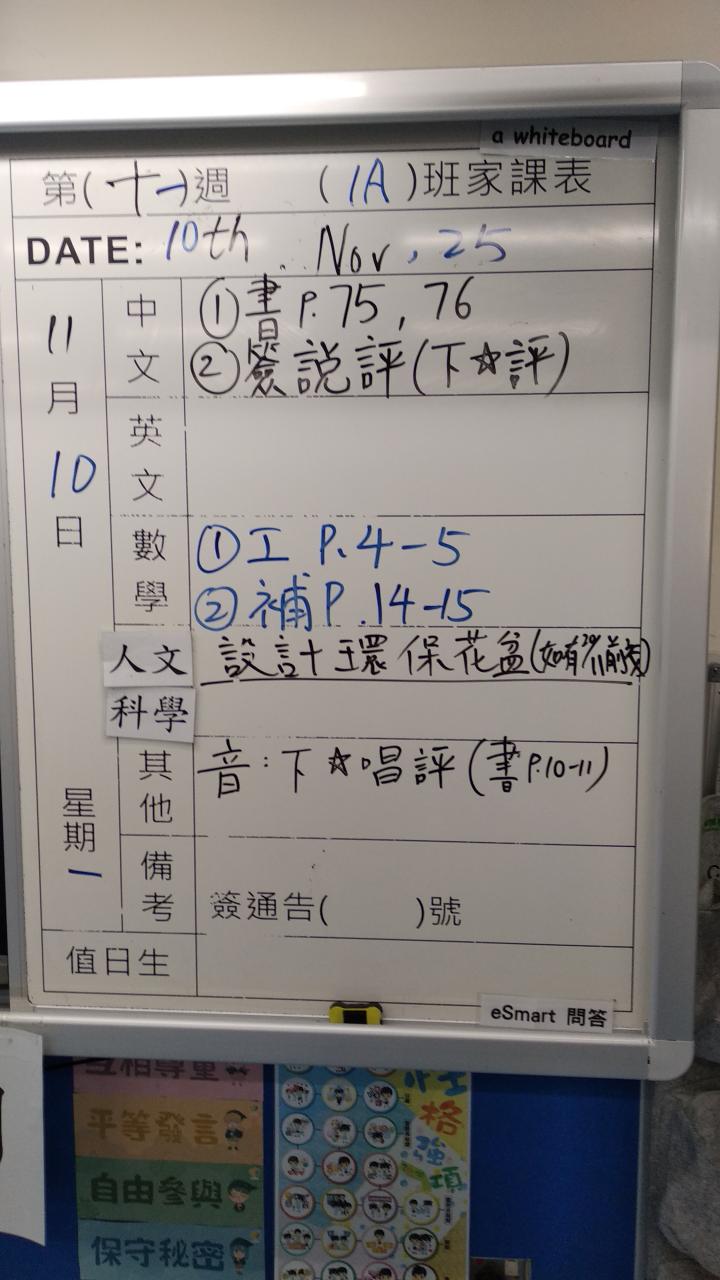 a whiteboard
第(十一)週 (1A)班家課表
DATE: 10th Nov, 25
11月10日
星期一
中文
①書 P.75, 76
②簽說評(下☆評)
英文
數學
①工 P.4-5
②補P.14-15
人文科學
設計環保花盆(如有
其他
音:下☆唱評(書P.10-11)
備考
簽通告( )號
值日生
eSmart 問答
互相尊重
平等發言
自由參與
保守秘密
性格強項